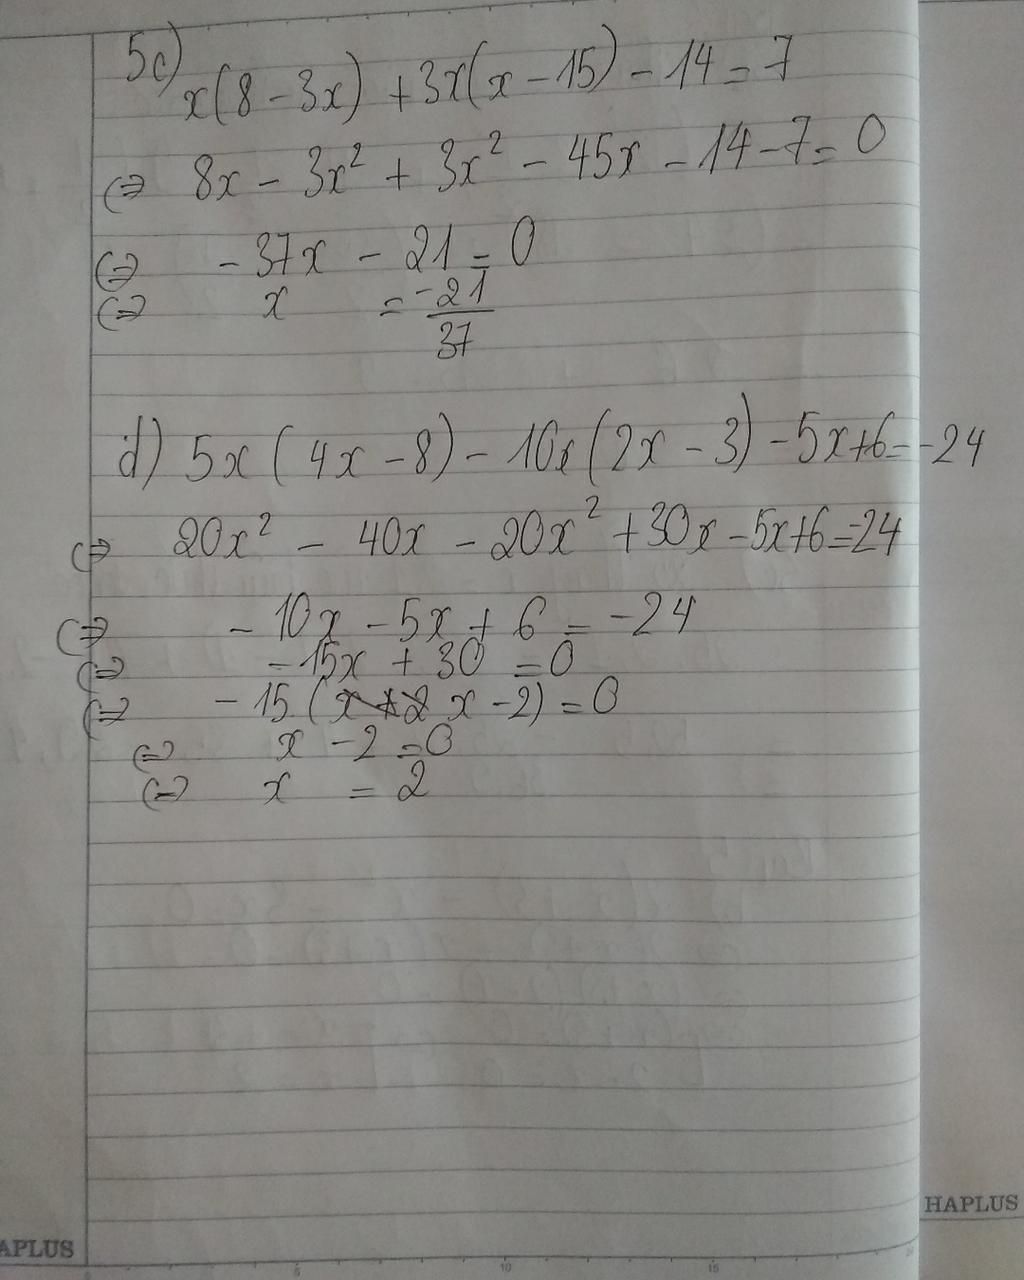 5c)
x(8 - 3x) + 3x(x - 15) - 14 = 7
(=) 8x - 3x² + 3x² - 45x - 14 - 7 = 0
(=) - 37x - 21 = 0
(=) x = -21/37
d) 5x (4x - 8) - 10x (2x - 3) - 5x + 6 = -24
(=) 20x² - 40x - 20x² + 30x - 5x + 6 = 24
(=) - 10x - 5x + 6 = -24
(=) - 15x + 30 = 0
(=) - 15 (x - 2) = 0
(=) x - 2 = 0
(=) x = 2
HAPLUS
APLUS
5 10 15